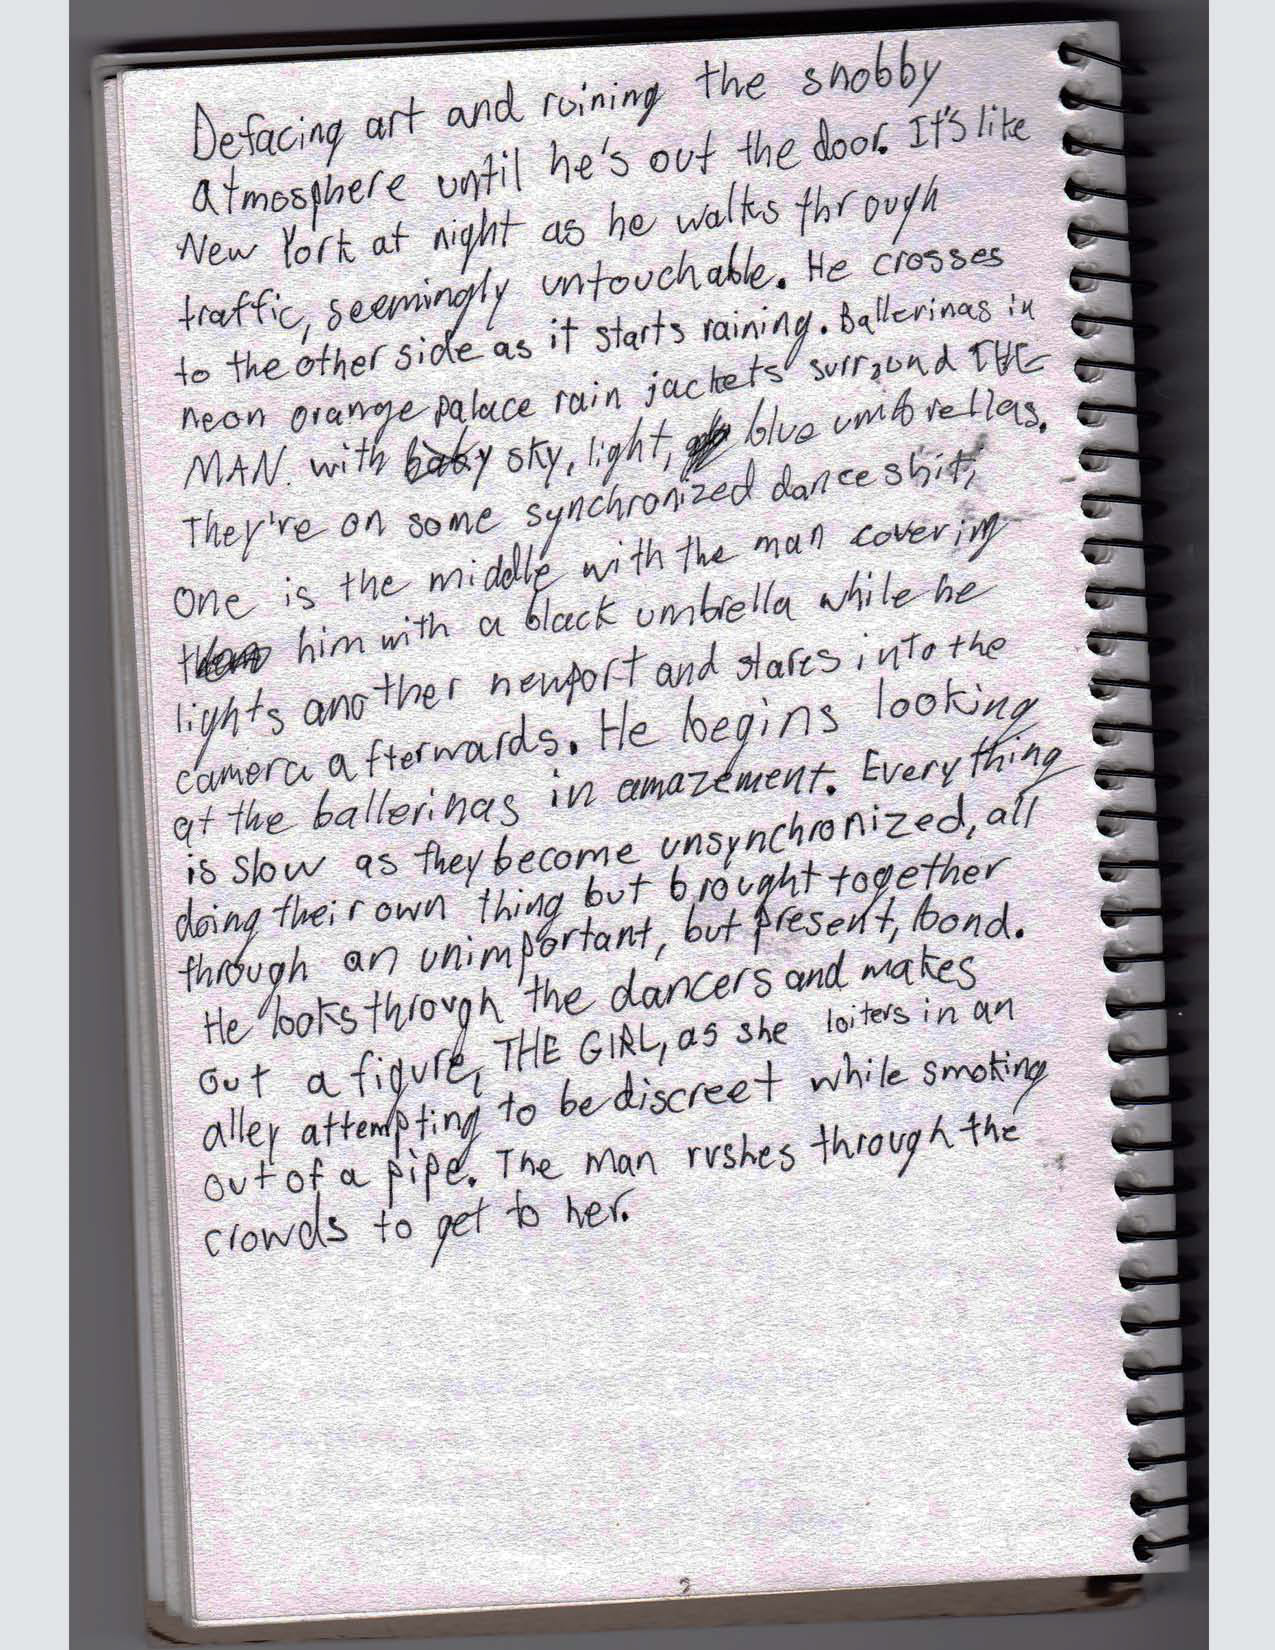 Defacing art and ruining the snobby
atmosphere until he's out the door. It's like
New York at night as he walks through
traffic, seemingly untouchable. He crosses
to the other side as it starts raining. Ballerinas in
neon orange palace rain jackets surround THE
MAN. with baby sky, light, blue umbrellas.
They're on some synchronized dance shit,
One is the middle with the man covering
him with a black umbrella while he
lights another newport and stares into the
camera afterwards. He begins looking
at the ballerinas in amazement. Everything
is slow as they become unsynchronized, all
doing their own thing but brought together
through an unimportant, but present, bond.
He looks through the dancers and makes
out a figure, THE GIRL, as she loiters in an
alley attempting to be discreet while smoking
out of a pipe. The man rushes through the
crowds to get to her.
2